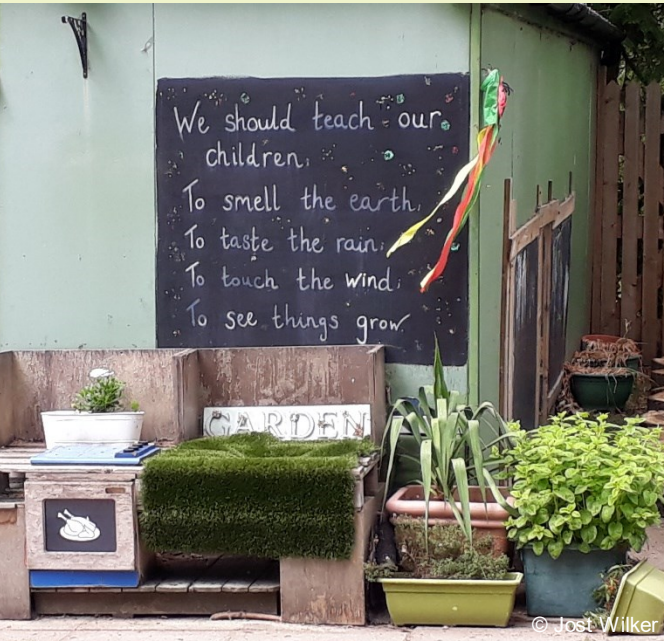 We should teach our
children,
To smell the earth,
To taste the rain,
To touch the wind,
To see things grow
GARDEN
© Jost Wilker